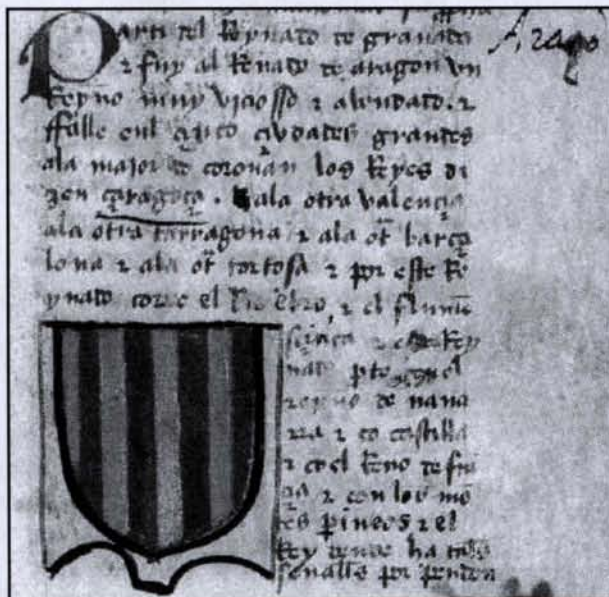 Arago
Parti del Reynado de granada
⁊ fuy al Renado de aragon vn
Reyno muy viciosso ⁊ abondado ⁊
ffalle enl çinco çiudades grandes
ala maior do coronan los Reyes di
zen çaragoça. ala otra valençia
ala otra tarragona ⁊ ala ot barça
lona ⁊ ala ot tortosa ⁊ por este Re
ynado corre el Rio ebro, ⁊ el flumē
⁊ este Rey
nado pte con el
reyno de naua
rra ⁊ co castilla
⁊ co el Reno de frā
çia ⁊ con los mō
tes pineos ⁊ el
Rey dende ha tales
senalles por pendon